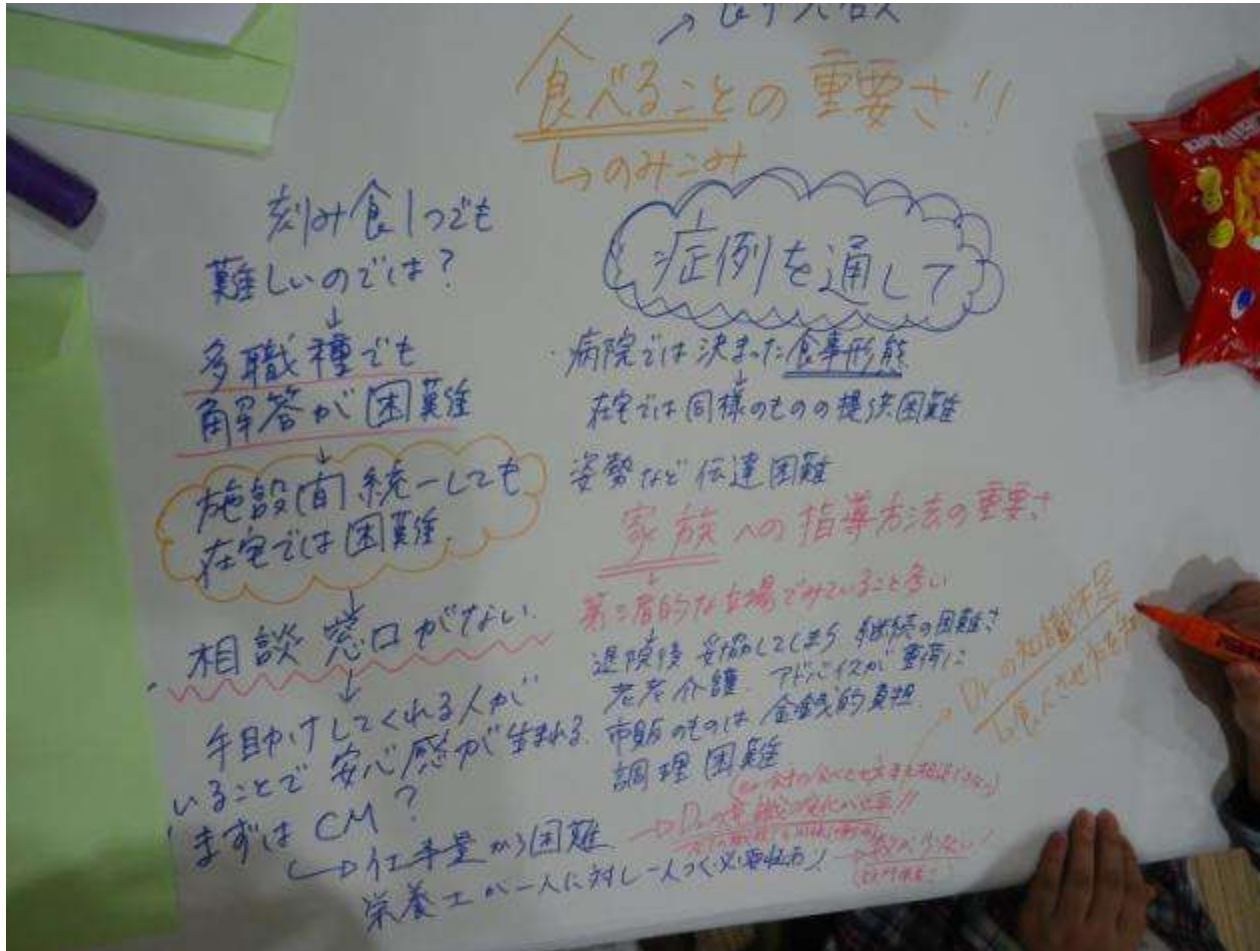 食べることの重要さ!!
↳のみこみ
刻み食1つでも
難しいのでは?
↓
多職種でも
解答が困難
↓
施設間統一しても
在宅では困難
↓
相談窓口がない
↓
手助けしてくれる人が
いることで安心感が生まれる
まずはCM?
↳仕事量から困難
栄養士が一人に対し一人つく必要性あり!
症例を通して
・病院では決まった食事形態
↓
在宅では同様のものの提供困難
姿勢など伝達困難
家族への指導方法の重要さ
↓
第三者的な立場でみていること多い
退院後妥協してしまう 継続の困難さ
老老介護 アドバイスが重荷に
市販のものは金銭的負担
調理困難
Drの知識不足
→Drの意識の変化が必要!!
→数が少ない!